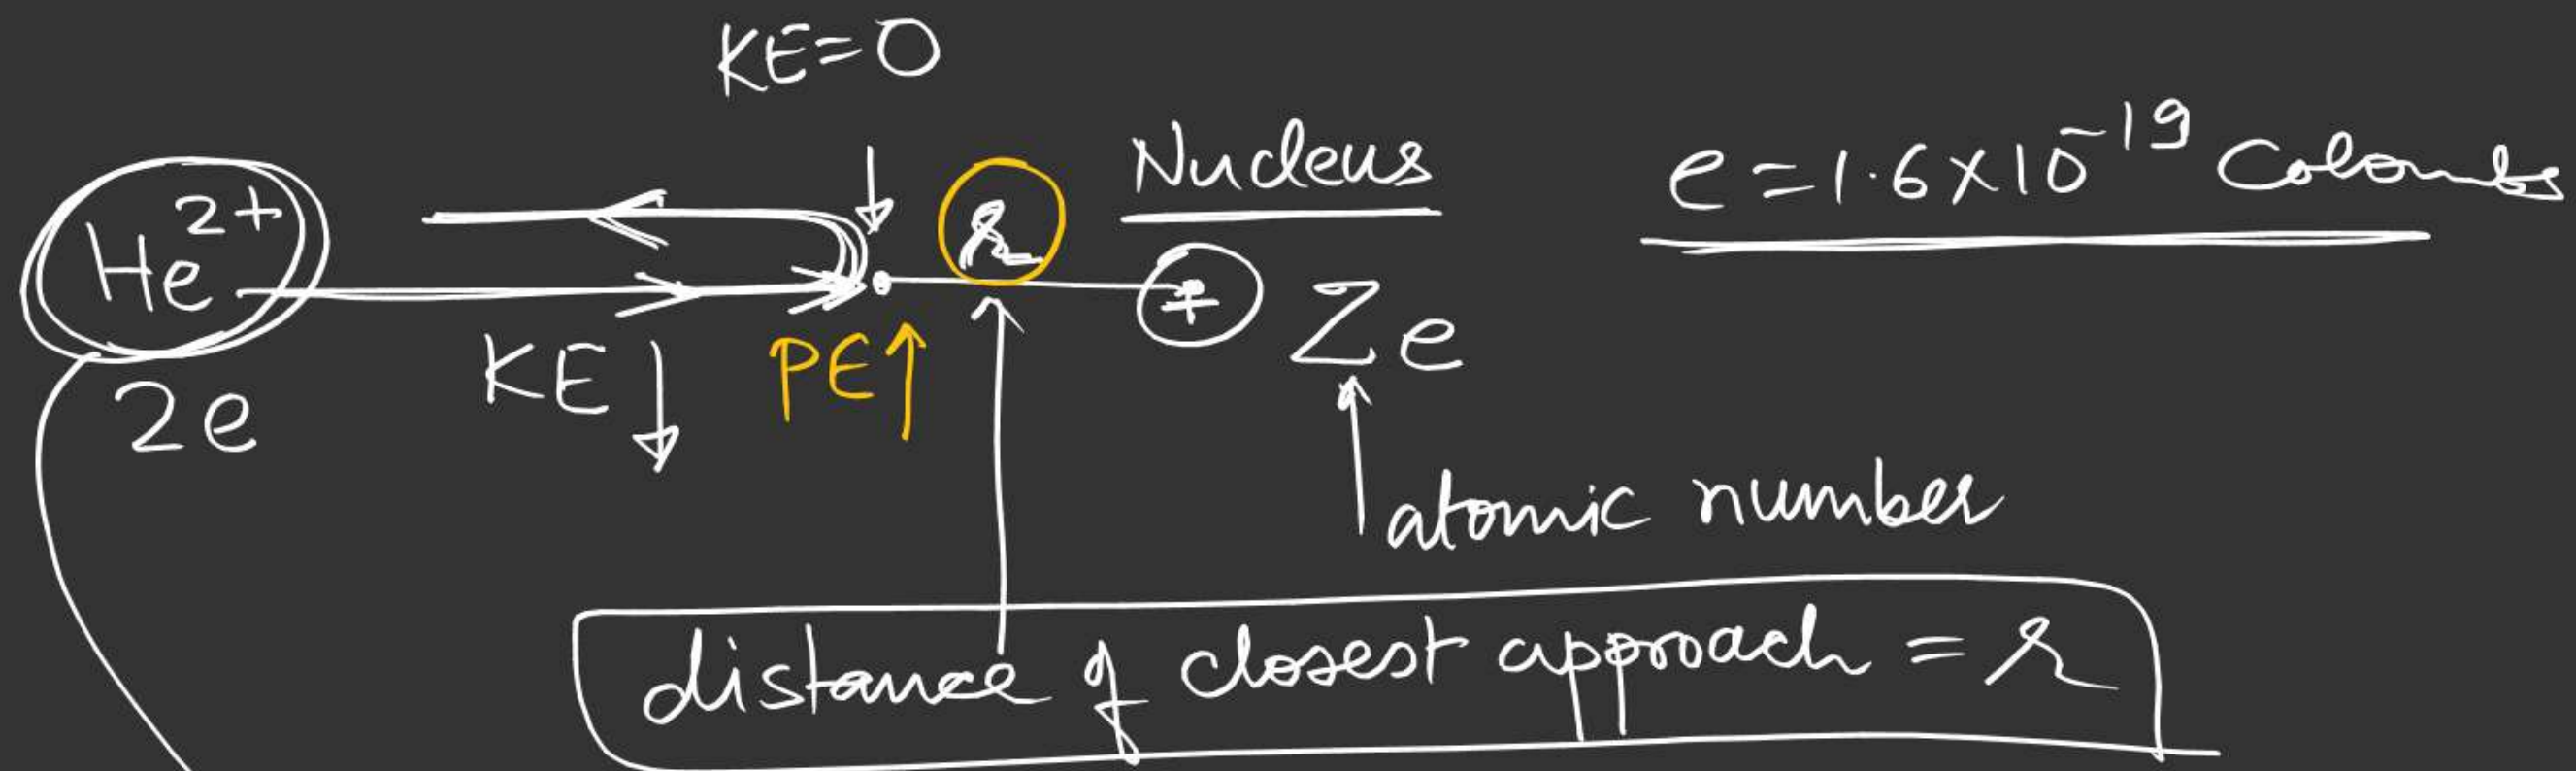 KE=0
Nucleus
e=1.6×10⁻¹⁹ Colombs
He²⁺
r
+
Ze
2e
KE↓
PE↑
atomic number
distance of closest approach = r